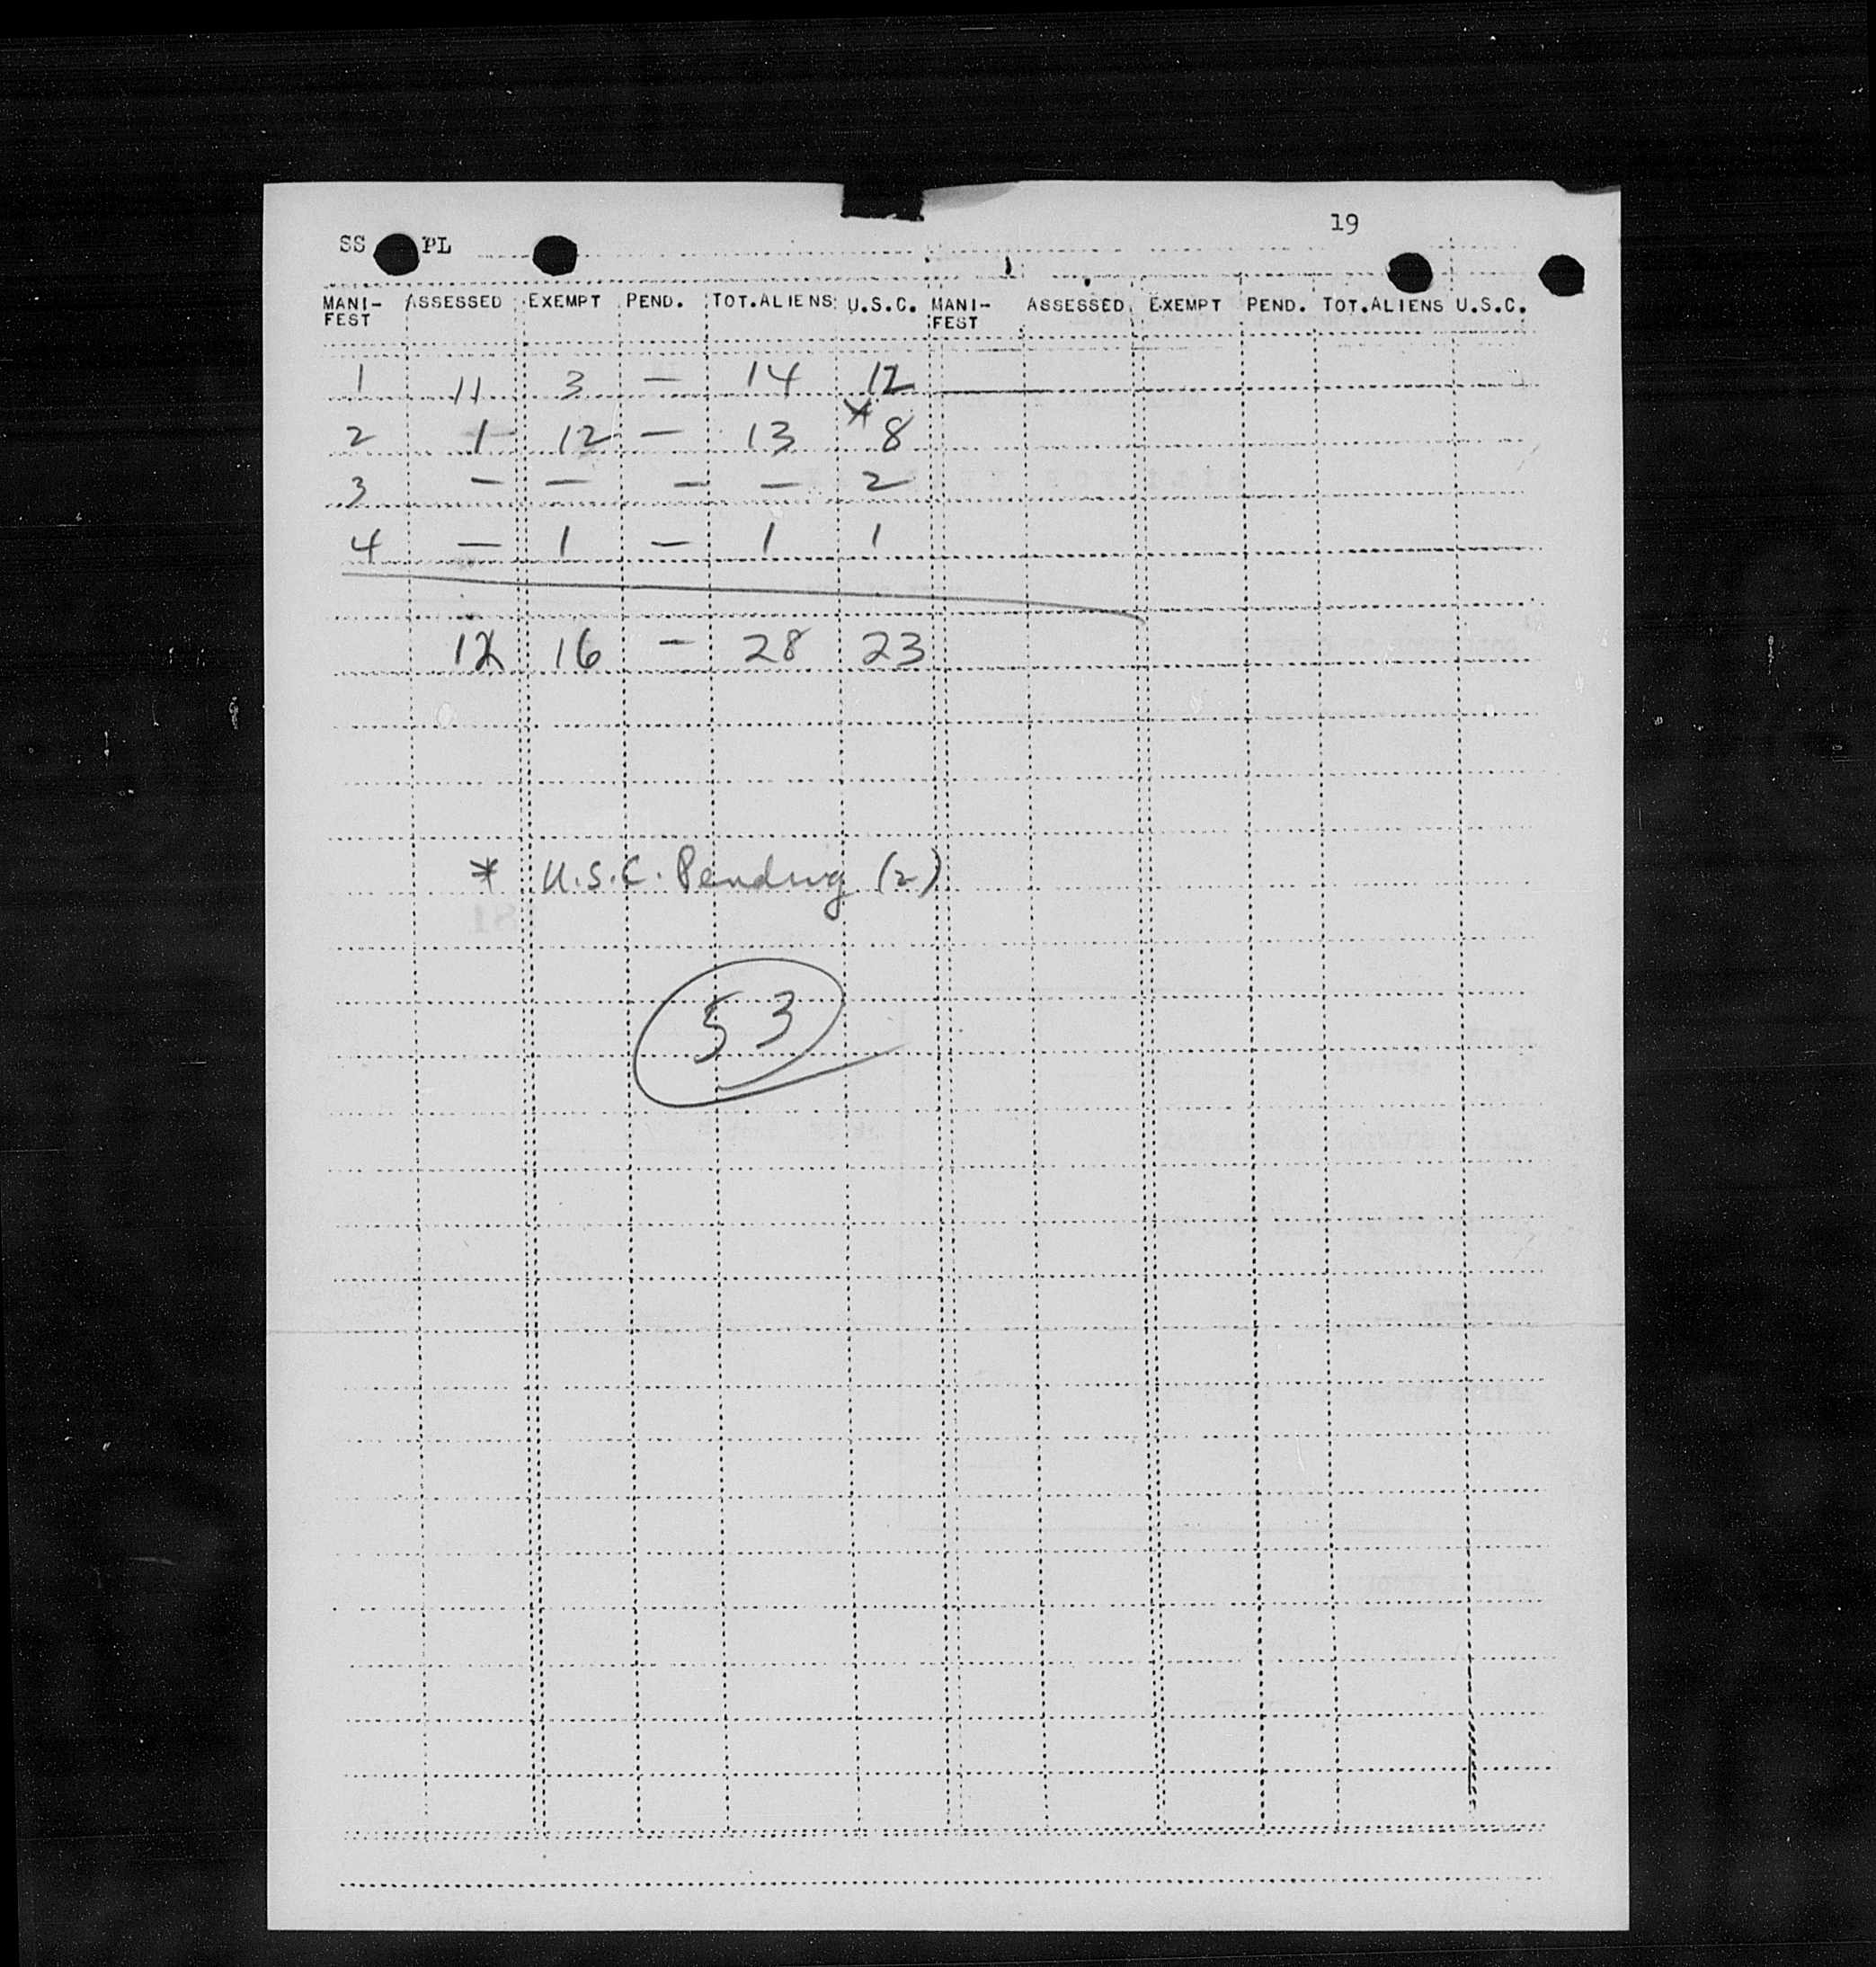 19
SS PL
MANI- ASSESSED EXEMPT PEND. TOT.ALIENS U.S.C. MANI- ASSESSED EXEMPT PEND. TOT.ALIENS U.S.C.
FEST FEST
1 11 3 — 14 12
2 1 12 — 13 *8
3 — — — — 2
4 — 1 — 1 1
12 16 — 28 23
* U.S.C. Pending (2)
53